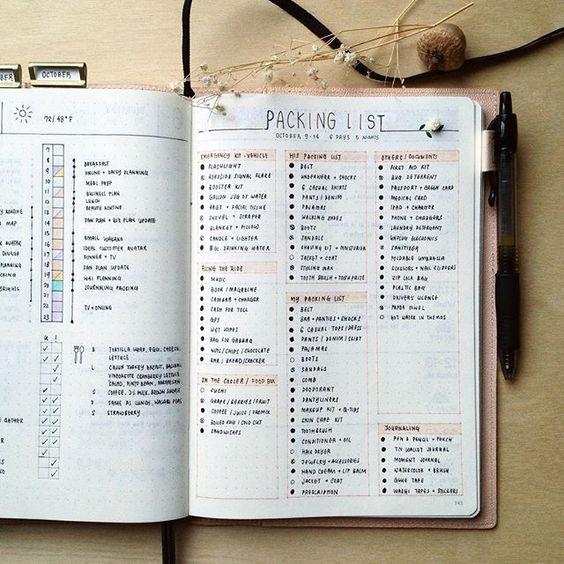 OCTOBER
72/48°F
7
8
9
10
11
12
13
14
15
16
17
18
19
20
21
22
23
BREAKFAST
ONLINE + DAILY PLANNING
MEAL PREP
BUSINESS PLAN
LUNCH
BEAUTY ROUTINE
DAN PLAN + BIZ PLAN UPDATE
EMAIL
IDEAL CUSTOMER AVATAR
DINNER + TV
DAN PLAN UPDATE
PLANNING
JOURNALING PACKING
TV + ONLINE
B TORTILLA WRAP, EGG, CHEESE,
LETTUCE
L CAJUN TURKEY BREAST, BALSAMIC
VINAIGRETTE CRANBERRY LETTUCE
S COFFEE, DS MILK, BREAD ROLL
D SAME AS LUNCH, WASABI PEAS
S STRAWBERRY
PACKING LIST
OCTOBER 9-14 6 DAYS 5 NIGHTS
EMERGENCY KIT - VEHICLE
FLASHLIGHT
ROADSIDE SIGNAL FLARE
BOOSTER KIT
GALLON JUG OF WATER
RAGS + FACIAL TISSUE
SHOVEL + SCRAPER
BLANKET + PILLOW
CANDLE + LIGHTER
BG. UMBRELLA
ALONG THE RIDE
MUSIC
BOOK / MAGAZINE
CAMERA + CHARGER
CASH FOR TOLL
GPS
WET WIPES
BAG FOR GARBAGE
NUTS / CHIPS / CHOCOLATE
BAR / BREAD / CRACKER
IN THE COOLER / FOOD BOX
SUSHI
GRAPE / BERRIES / FRUIT
COFFEE / JUICE / PREMIX
BOILED EGG / COLD CUT
SANDWICHES
HIS PACKING LIST
BELT
UNDERWEAR + SOCKS
6 CASUAL SHIRTS
PANTS / DENIM
PAJAMAS
WALKING SHOES
BOOTS
SANDALS
SHAVING KIT + MOISTURIZER
JACKET + COAT
STYLING WAX
TOOTH BRUSH + TOOTHPASTE
MY PACKING LIST
BELT
BRA + PANTIES + SOCKS
6 CASUAL TOPS / DRESS
PANTS / DENIM / SKIRT
PAJAMAS
BOOTS
SANDALS
COMB
DEODORANT
PANTYLINERS
MAKEUP KIT + Q-TIPS
SKIN CARE KIT
TOOTHBRUSH
CONDITIONER + OIL
HAIR DRYER
JEWELRY + ACCESSORIES
HAND CREAM + LIP BALM
JACKET + COAT
PRESCRIPTION
OTHERS / DOCUMENTS
FIRST AID KIT
BUG DETERRENT
PASSPORT + GREEN CARD
MEDICAL CARD
IPAD + CHARGER
PHONE + CHARGERS
LAUNDRY DETERGENT
KEEPSURE ELECTRONICS
SANITIZER
FOLDABLE UMBRELLA
SCISSORS + NAIL CLIPPERS
ZIP LOCK BAG
PLASTIC BAG
DRIVERS LICENSE
PAPER TOWEL
HOT WATER IN THERMOS
JOURNALING
PEN & PENCIL + POUCH
TN WALLET JOURNAL
MOMENT JOURNAL
WATERCOLOR + BRUSH
GLUE TAPE
WASHI TAPES + STICKERS